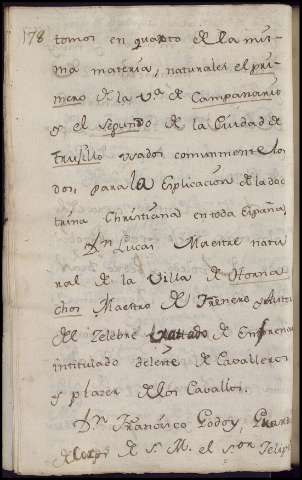 178 tomos en quarto de la mis-
ma materia, naturales el pri-
mero de la V.ª de Campanario
y el segundo de la Ciudad de
Trugillo usados comunmente to
dos, para la Explicacion de la doc
trina Christiana en toda España,
Dn Lucas Maestre natu
ral de la Villa de Horna
chos Maestro de Freneros y Autor
del Zelebre tratado de Enfrenar
intitulado deleite de Cavalleros
y plazer de los Cavallos.
Dn Francisco Godoy, Guard
de Corps de S. M. el S.or Felip